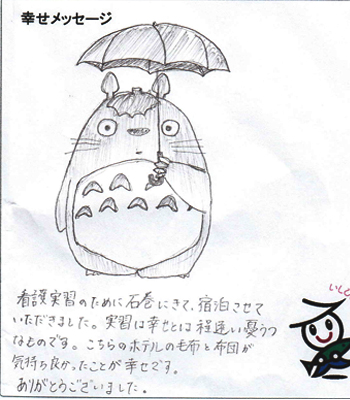 幸せメッセージ
看護実習のために石巻にきて、宿泊させて
いただきました。実習は幸せとは程遠い憂うつ
なものです。こちらのホテルの毛布と布団が
気持ち良かったことが幸せです。
ありがとうございました。